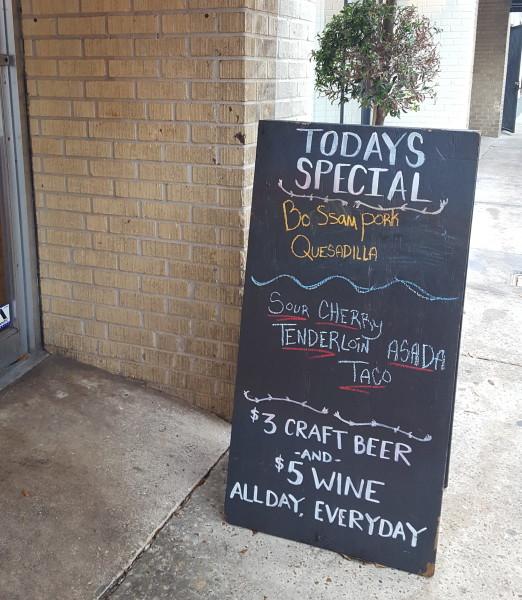 TODAYS
SPECIAL
Bo Ssam pork
QUESADILLA
SOUR CHERRY
TENDERLOIN ASADA
TACO
$3 CRAFT BEER
-AND-
$5 WINE
ALLDAY, EVERYDAY